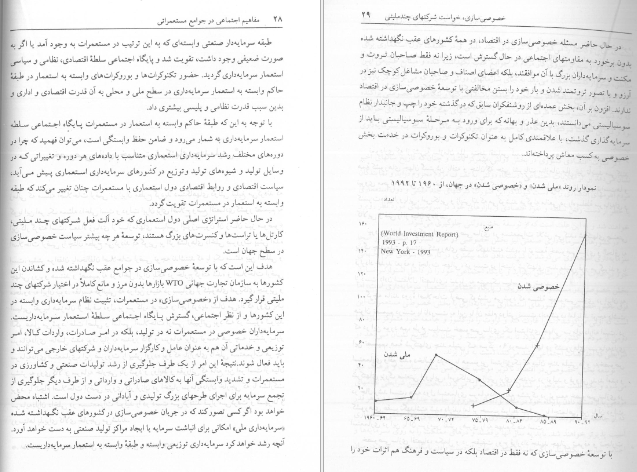 ۲۸ مفاهیم اجتماعی در جوامع مستعمراتی
طبقه سرمایه‌دار صنعتی وابسته‌ای که به این ترتیب در مستعمرات به وجود آمد یا اگر به
صورت ضعیفی وجود داشت، تقویت شد و پایگاه اجتماعی سلطهٔ اقتصادی، نظامی و سیاسی
استعمار سرمایه‌داری گردید. حضور تکنوکراتها و بوروکراتهای وابسته به استعمار در طبقهٔ
حاکم وابسته به استعمار سرمایه‌داری در سطح ملی و محلی به آن قدرت اقتصادی و اداری و
بدین سبب قدرت نظامی و پلیسی بیشتری داد.
با توجه به این که طبقهٔ حاکم وابسته به استعمار در مستعمرات پایگاه اجتماعی سلطه
استعمار سرمایه‌داری به شمار می‌رود و ضامن حفظ وابستگی است، می‌توان فهمید که چرا در
دوره‌های مختلف رشد سرمایه‌داری استعماری متناسب با داده‌های هر دوره و تغییراتی که در
وسایل تولید و شیوه‌های تولید و توزیع در کشورهای سرمایه‌داری استعماری پیش می‌آید،
سیاست اقتصادی و روابط اقتصادی دول استعماری با مستعمرات چنان تغییر می‌کند که طبقه
وابسته به استعمار در مستعمرات تقویت گردد.
در حال حاضر استراتژی اصلی دول استعماری که خود آلت فعل شرکتهای چند ملیتی،
کارتل‌ها یا تراست‌ها و کنسرت‌های بزرگ هستند، توسعهٔ هر چه بیشتر سیاست خصوصی‌سازی
در سطح جهان است.
هدف این است که با توسعهٔ خصوصی‌سازی در جوامع عقب نگهداشته شده و کشاندن این
کشورها به سازمان تجارت جهانی WTO بازارها بدون مرز و مانع کاملاً در اختیار شرکتهای چند
ملیتی قرار گیرد. هدف از «خصوصی‌سازی» در مستعمرات، تثبیت نظام سرمایه‌داری وابسته در
این کشورها و از نظر اجتماعی، گسترش پایگاه اجتماعی سلطهٔ استعمار سرمایه‌داریست.
سرمایه‌داران خصوصی در مستعمرات نه در تولید، بلکه در امر صادرات، واردات کالا، امر
توزیعی و خدماتی آن هم به عنوان عامل و کارگزار سرمایه‌داران و شرکتهای خارجی می‌توانند و
باید فعال شوند. نتیجهٔ این امر از یک طرف جلوگیری از رشد تولیدات صنعتی و کشاورزی در
مستعمرات و تشدید وابستگی آنها به کالاهای صادراتی و وارداتی و از طرف دیگر جلوگیری از
تجمع سرمایه برای اجرای طرحهای بزرگ تولیدی و آبادانی در دست دول است. اشتباه محض
خواهد بود اگر کسی تصور کند که در جریان خصوصی‌سازی در کشورهای عقب نگهداشته شده
«سرمایه‌داری ملی» امکانی برای انباشت سرمایه یا ایجاد مراکز تولید صنعتی به دست خواهد آورد.
آنچه رشد خواهد کرد سرمایه‌داری توزیعی وابسته و طبقهٔ وابسته به استعمار سرمایه‌داریست.
خصوصی‌سازی، خواست شرکتهای چندملیتی ۲۹
در حال حاضر مسئله خصوصی‌سازی در اقتصاد، در همهٔ کشورهای عقب نگهداشته شده
بدون برخورد به مقاومتهای اجتماعی در حال گسترش است، زیرا نه فقط صاحبان ثروت و
مکنت و سرمایه‌داران بزرگ با آن موافقند، بلکه اعضای اصناف و صاحبان مشاغل کوچک نیز در
آرزو و با تصور ثروتمند شدن و بار خود را بستن مخالفتی با توسعهٔ خصوصی‌سازی در اقتصاد
ندارند. افزون بر آن، بخش عمده‌ای از روشنفکران سابق که در گذشته خود را چپ و جانبدار نظام
سوسیالیستی می‌دانستند، بدین عذر و بهانه که برای ورود به مرحلهٔ سوسیالیستی باید از
سرمایه‌داری گذشت، با علاقمندی کامل به عنوان تکنوکرات و بوروکرات در خدمت بخش
خصوصی به کسب معاش پرداخته‌اند.
نمودار روند «ملی شدن» و «خصوصی شدن» در جهان، از ۱۹۶۰ تا ۱۹۹۲
تعداد
(World Investment Report)
1993 - p. 17
New York - 1993
خصوصی شدن
ملی شدن
۱۶۰
۱۴۰
۱۲۰
۱۰۰
۸۰
۶۰
۴۰
۲۰
۰
۱۹۶۰_۶۴ ۶۵_۶۹ ۷۰_۷۴ ۷۵_۷۹ ۸۰_۸۴ ۸۵_۸۹ ۹۰_۹۲ سال
با توسعهٔ خصوصی‌سازی که نه فقط در اقتصاد بلکه در سیاست و فرهنگ هم اثرات خود را